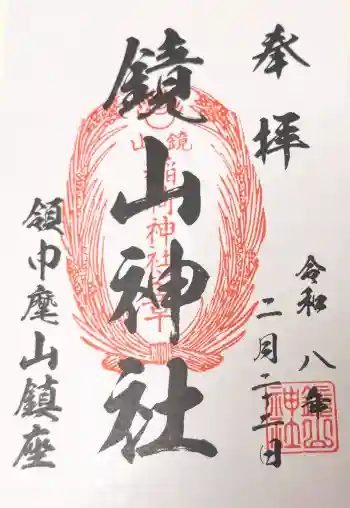 奉拝
令和八年
二月二十一日
鏡山神社
鏡山
稲荷神社
領巾麾山鎮座
鏡山
神社